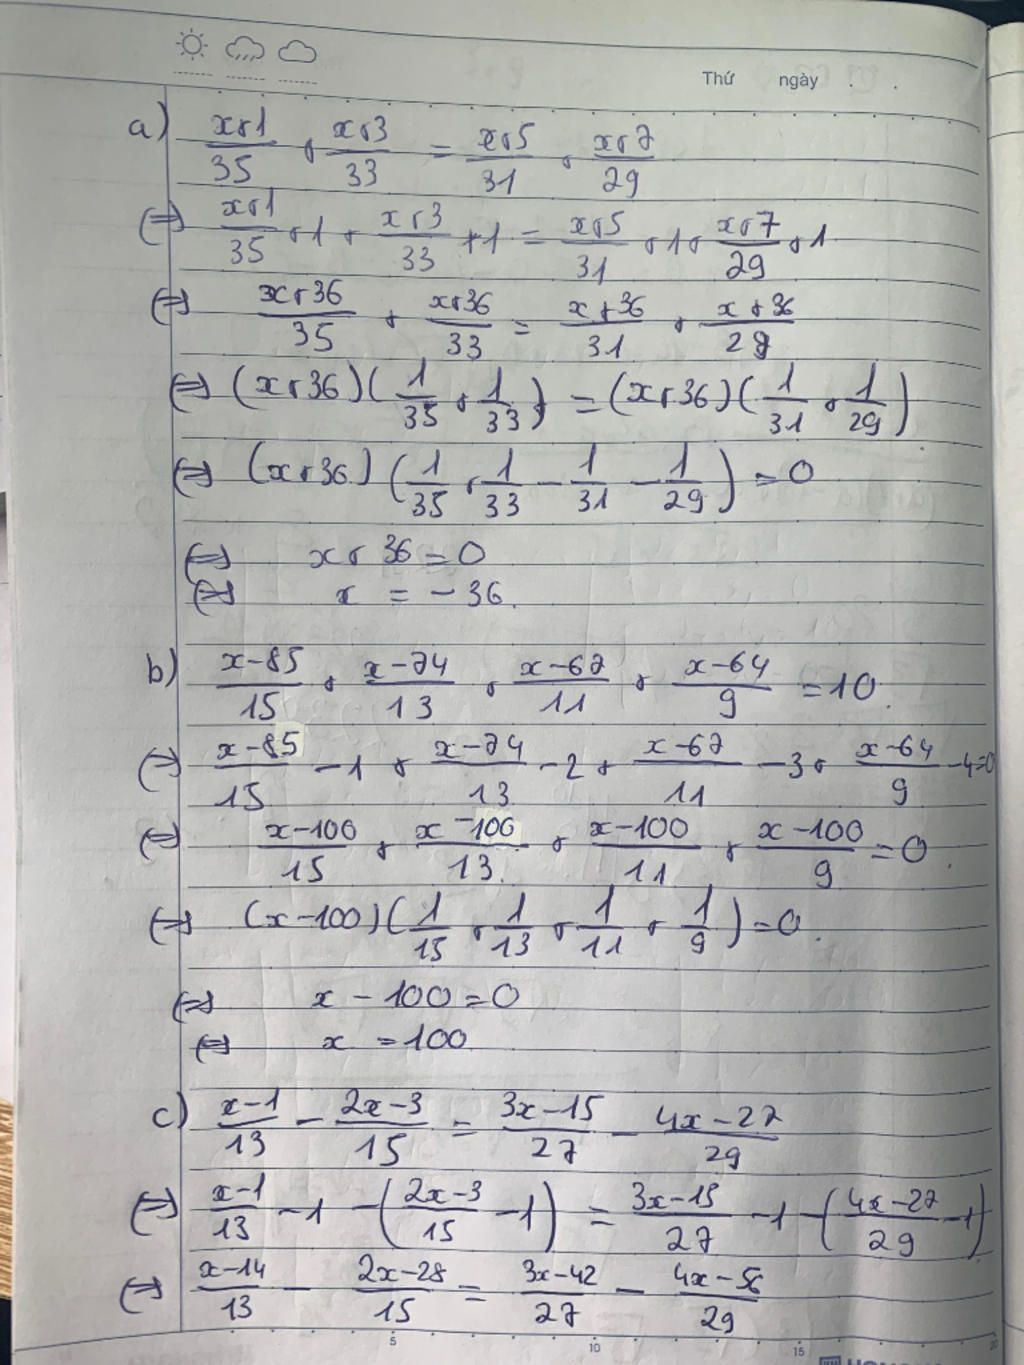 Thứ ngày
a) (x+1)/35 + (x+3)/33 = (x+5)/31 + (x+7)/29
⇔ (x+1)/35 + 1 + (x+3)/33 + 1 = (x+5)/31 + 1 + (x+7)/29 + 1
⇔ (x+36)/35 + (x+36)/33 = (x+36)/31 + (x+36)/29
⇔ (x+36)(1/35 + 1/33) = (x+36)(1/31 + 1/29)
⇔ (x+36)(1/35 + 1/33 - 1/31 - 1/29) = 0
⇔ x+36 = 0
⇔ x = -36.
b) (x-85)/15 + (x-74)/13 + (x-67)/11 + (x-64)/9 = 10
⇔ (x-85)/15 - 1 + (x-74)/13 - 2 + (x-67)/11 - 3 + (x-64)/9 - 4 = 0
⇔ (x-100)/15 + (x-100)/13 + (x-100)/11 + (x-100)/9 = 0.
⇔ (x-100)(1/15 + 1/13 + 1/11 + 1/9) = 0.
⇔ x - 100 = 0
⇔ x = 100
c) (x-1)/13 - (2x-3)/15 = (3x-15)/27 - (4x-27)/29
⇔ (x-1)/13 - 1 - ((2x-3)/15 - 1) = (3x-15)/27 - 1 - ((4x-27)/29 - 1)
⇔ (x-14)/13 - (2x-28)/15 = (3x-42)/27 - (4x-56)/29
5 10 15 20